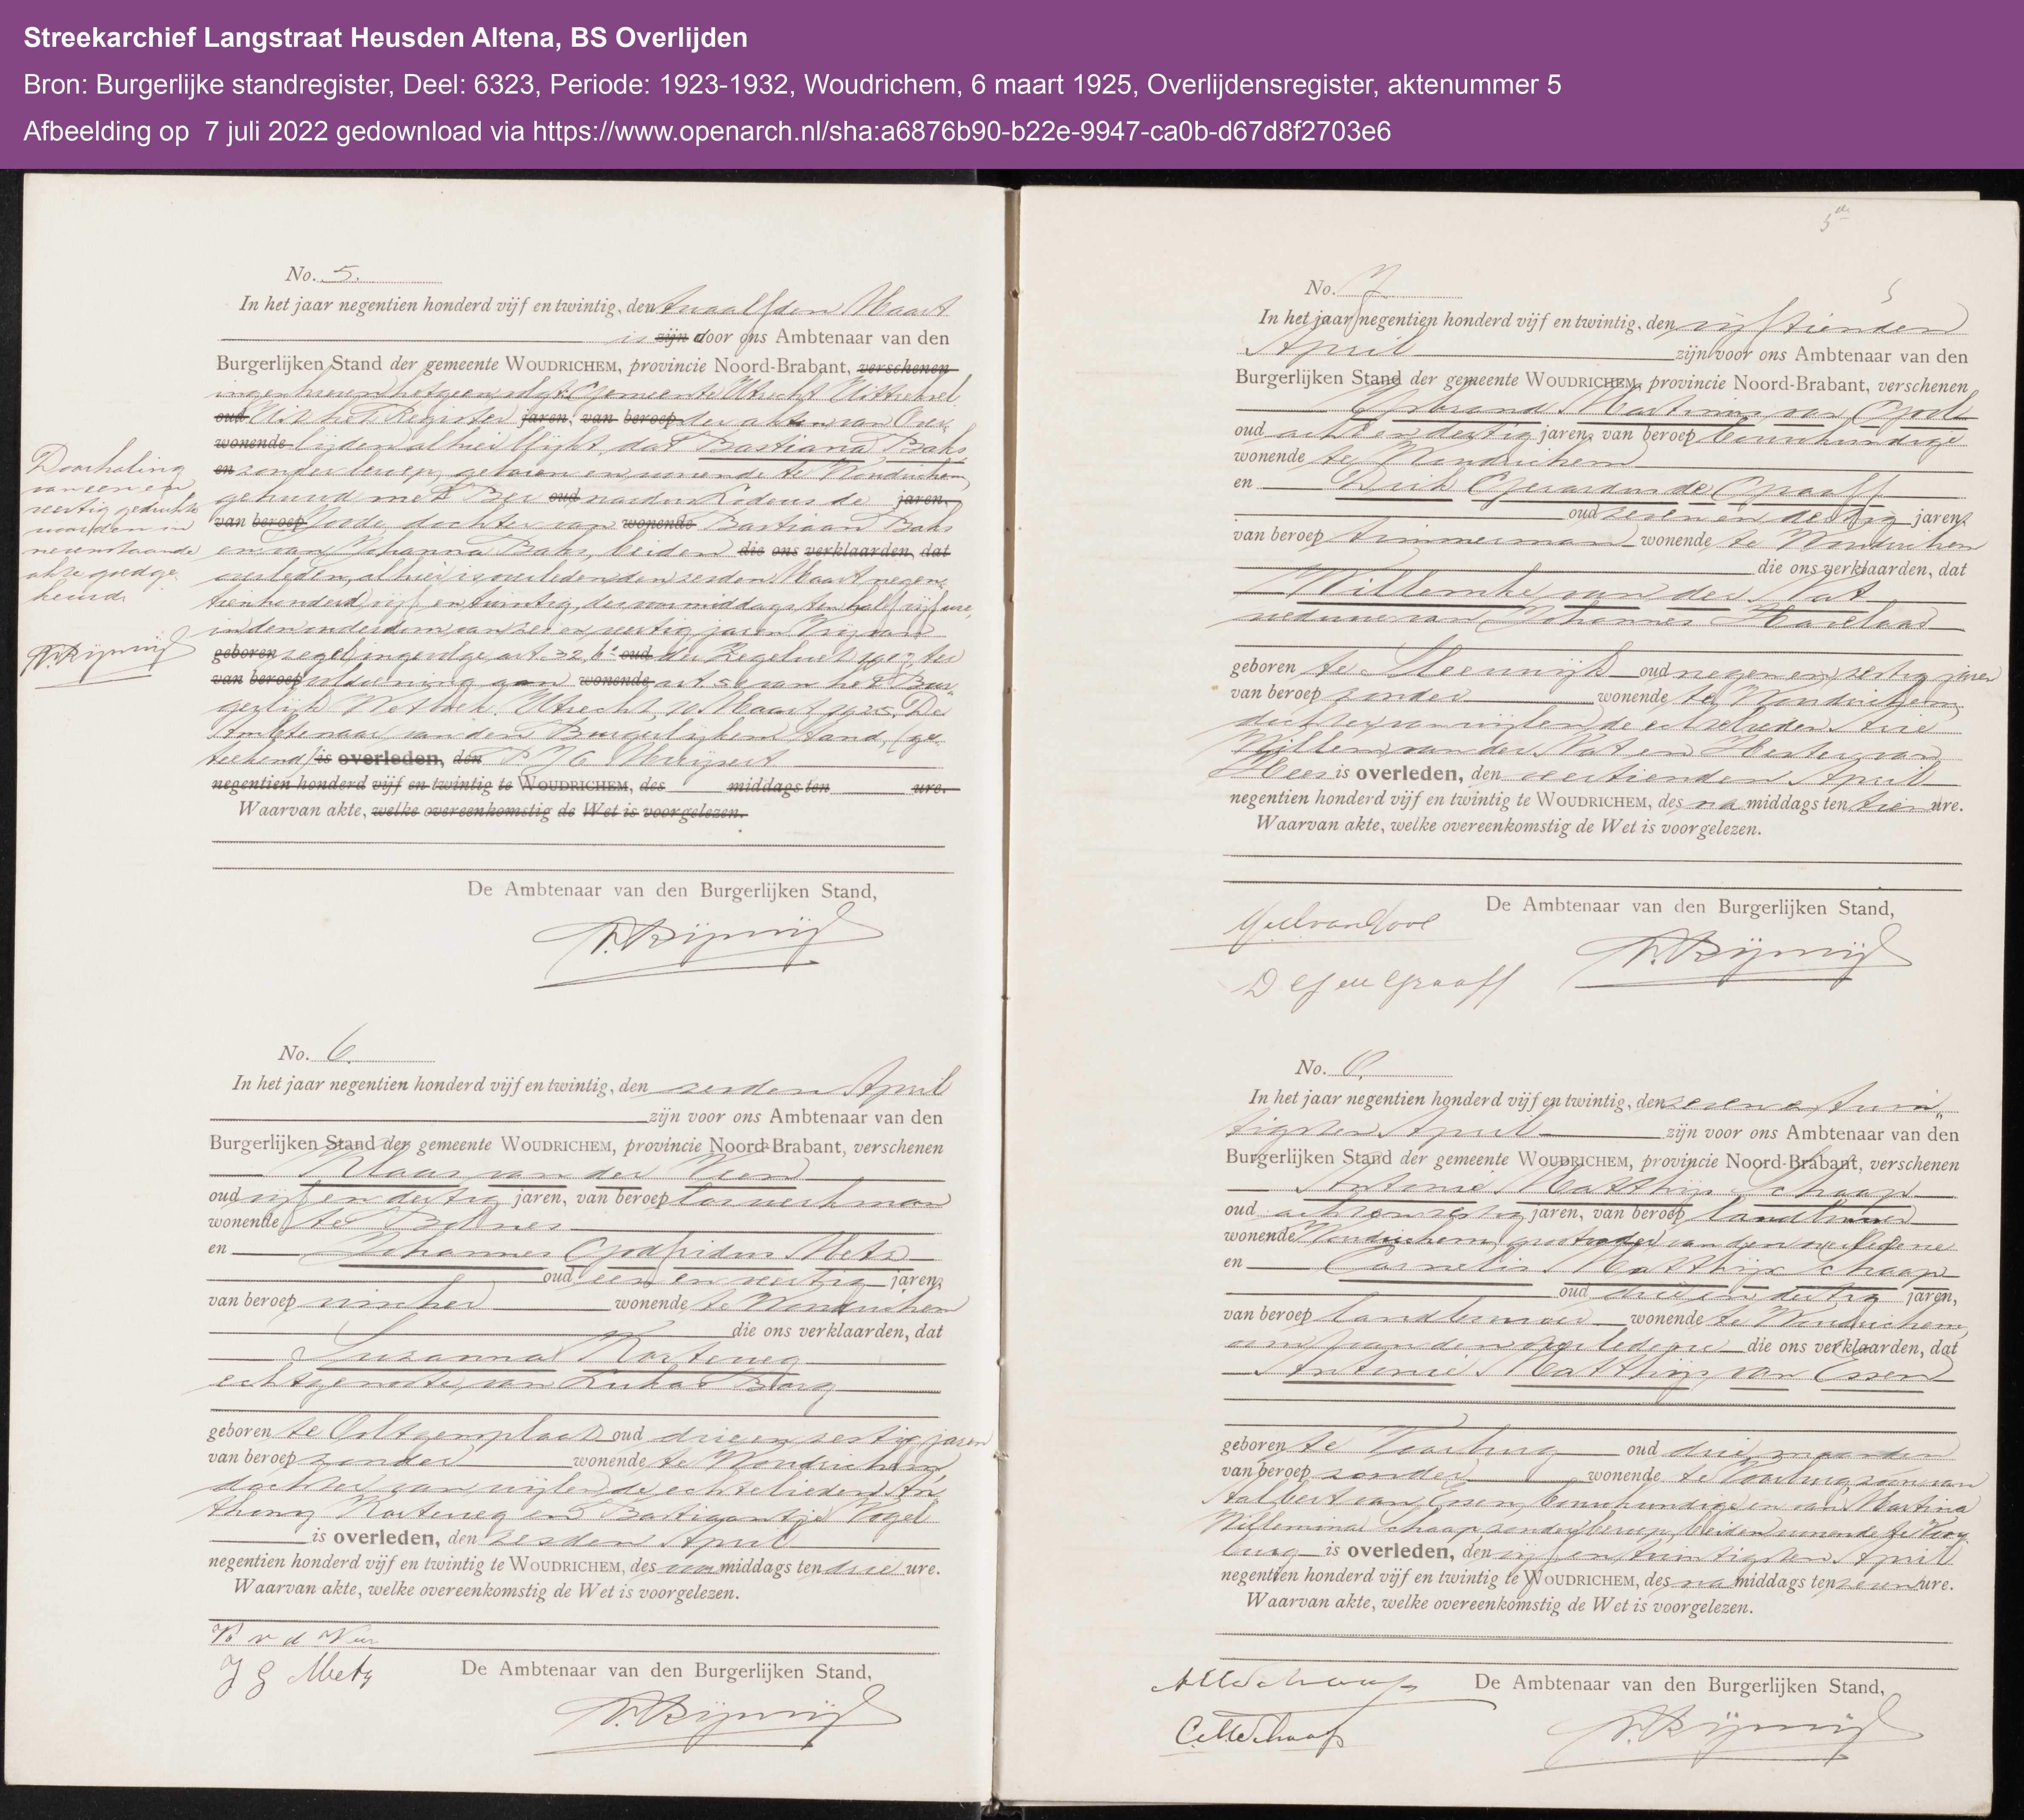 Streekarchief Langstraat Heusden Altena, BS Overlijden
Bron: Burgerlijke standregister, Deel: 6323, Periode: 1923-1932, Woudrichem, 6 maart 1925, Overlijdensregister, aktenummer 5
Afbeelding op 7 juli 2022 gedownload via https://www.openarch.nl/sha:a6876b90-b22e-9947-ca0b-d67d8f2703e6
No. 5.
In het jaar negentien honderd vijf en twintig, den twaalfden Maart
is zijn door ons Ambtenaar van den
Burgerlijken Stand der gemeente WOUDRICHEM, provincie Noord-Brabant, verschenen
ingeschreven hetgeen volgt: Gemeente Utrecht Uittreksel
oud Uit het Register jaren, van beroep der akten van Over
wonende lijden alhier blijkt, dat Bastiana Baks,
en zonder beroep, geboren en wonende te Woudrichem,
gehuwd met oud jaren,
van beroep dochter van wonende Bastiaan Baks
en van Johanna Baks, beiden die ons verklaarden, dat
overleden, alhier is overleden den zesden Maart negen
tienhonderd vijf en twintig, des voormiddags ten half vijf ure,
in den ouderdom van zes en veertig jaren Vrij van
geboren zegel ingevolge art. 32, 6° oud der Zegelwet 1917 ter
van beroep voldoening aan wonende art. 50 van het Bur
gerlijk Wetboek. Utrecht, 10 Maart 1925. De
Ambtenaar van den Burgerlijken Stand, (ge
teekend) is overleden, den
negentien honderd vijf en twintig te WOUDRICHEM, des middags ten ure.
Waarvan akte, welke overeenkomstig de Wet is voorgelezen.
Doorhaling
van een en
veertig gedrukte
woorden in
nevenstaande
akte goedge
keurd.
De Ambtenaar van den Burgerlijken Stand,
No. 6.
In het jaar negentien honderd vijf en twintig, den zesden April
zijn voor ons Ambtenaar van den
Burgerlijken Stand der gemeente WOUDRICHEM, provincie Noord-Brabant, verschenen
Klaas van der Veen
oud vijf en dertig jaren, van beroep
wonende te
en Johannes Godfridus Metz
oud een en veertig jaren,
van beroep visscher wonende te Woudrichem
die ons verklaarden, dat
Suzanna Korteweg
echtgenoote van Lukas Burg
geboren te Ooltgensplaat oud drie en zestig jaren
van beroep zonder wonende te Woudrichem,
dochter van wijlen de echtelieden An
thony Korteweg en Bastiaantje Vogel
is overleden, den zesden April
negentien honderd vijf en twintig te WOUDRICHEM, des voormiddags ten drie ure.
Waarvan akte, welke overeenkomstig de Wet is voorgelezen.
K v d Veen
J G Metz
De Ambtenaar van den Burgerlijken Stand,
5de
No. 7
5
In het jaar negentien honderd vijf en twintig, den vijftienden
April zijn voor ons Ambtenaar van den
Burgerlijken Stand der gemeente WOUDRICHEM, provincie Noord-Brabant, verschenen
Martinus van Gool
oud acht en dertig jaren, van beroep bouwkundige
wonende te Woudrichem
en Dirk Gerardus de Graaff
oud zeven en dertig jaren,
van beroep timmerman wonende te Woudrichem
die ons verklaarden, dat
Willemke van der Nat
weduwe van Johannes Havelaar
geboren te Sleeuwijk oud negen en zestig jaren
van beroep zonder wonende te Woudrichem,
dochter van wijlen de echtelieden Arie
Willem van der Nat en Hester van
Hees is overleden, den veertienden April
negentien honderd vijf en twintig te WOUDRICHEM, des namiddags ten tien ure.
Waarvan akte, welke overeenkomstig de Wet is voorgelezen.
De Ambtenaar van den Burgerlijken Stand,
D G de Graaff
No. 8.
In het jaar negentien honderd vijf en twintig, den zeven en twin
tigsten April zijn voor ons Ambtenaar van den
Burgerlijken Stand der gemeente WOUDRICHEM, provincie Noord-Brabant, verschenen
Antonie Matthijs Schaap
oud acht en zestig jaren, van beroep landbouwer
wonende Woudrichem, grootvader van den overledene
en Cornelis Matthijs Schaap
oud drie en dertig jaren,
van beroep landbouwer wonende te Woudrichem,
oom van den overledene die ons verklaarden, dat
Antonie Matthijs van Essen
geboren te Voorburg oud drie maanden
van beroep zonder wonende te Voorburg, zoon van
Aalbert van Essen, bouwkundige en van Martina
Willemina Schaap, zonder beroep, beiden wonende te Voor
burg is overleden, den vijf en twintigsten April
negentien honderd vijf en twintig te WOUDRICHEM, des namiddags ten zeven ure.
Waarvan akte, welke overeenkomstig de Wet is voorgelezen.
AM Schaap
C.M. Schaap
De Ambtenaar van den Burgerlijken Stand,